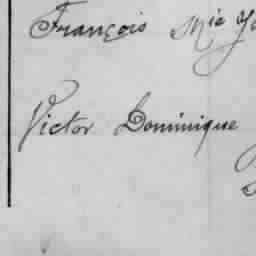 François Mie
Victor Dominique